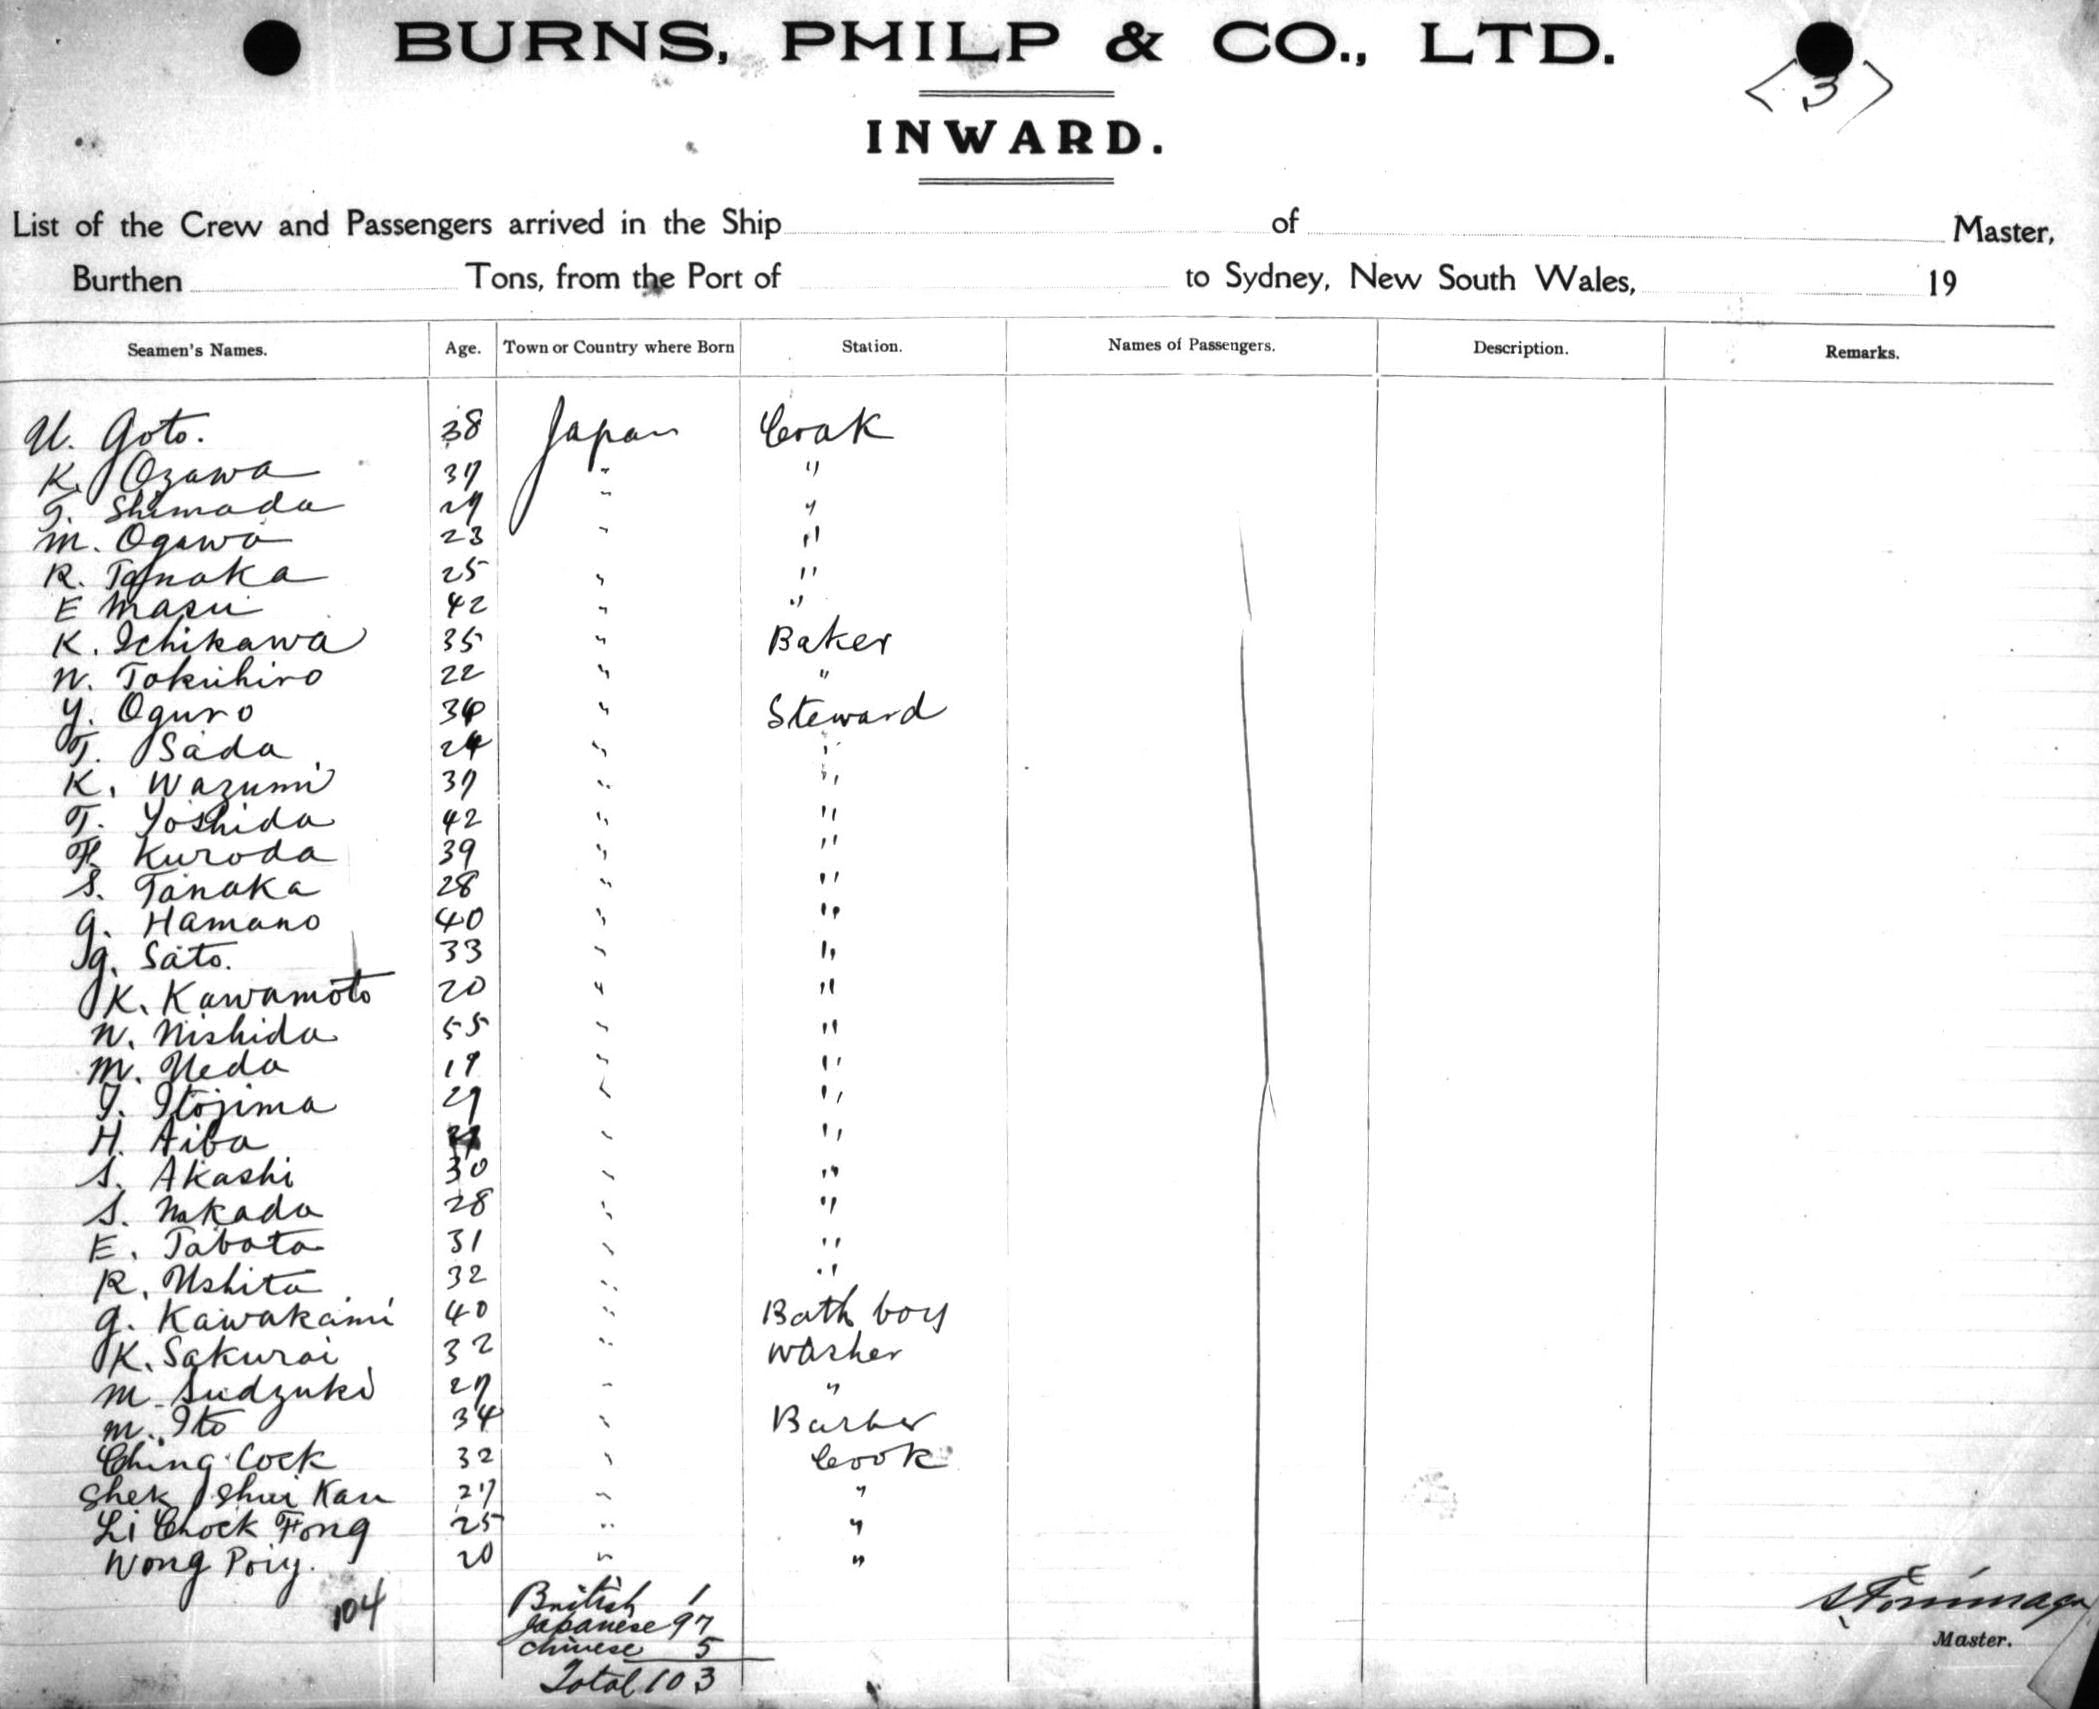 BURNS, PHILP & CO., LTD.
3
INWARD.
List of the Crew and Passengers arrived in the Ship of Master,
Burthen Tons, from the Port of to Sydney, New South Wales, 19
Seamen's Names. Age. Town or Country where Born Station. Names of Passengers. Description. Remarks.
U. Goto. 38 Japan Cook
K. Ozawa 37 " "
T. Shimada 27 " "
M. Ogawa 23 " "
R. Tanaka 25 " "
E Masu 42 " "
K. Ichikawa 35 " Baker
N. Tokuhiro 22 " "
Y. Oguro 36 " Steward
T. Sada 24 " "
K. Wazumi 37 " "
T. Yoshida 42 " "
Kuroda 39 " "
S. Tanaka 28 " "
G. Hamano 40 " "
G. Sato. 33 " "
K. Kawamoto 20 " "
N. Nishida 55 " "
M. Ueda 19 " "
I. Itojima 29 " "
H. Aiba " "
S. Akashi 30 " "
S. Nakada 28 " "
E. Tabata 31 " "
R. Ushita 32 " "
G. Kawakami 40 " Bath boy
K. Sakurai 32 " Washer
M. Sudzuki 27 " "
M. Ito 34 " Barber
Ching Cock 32 " Cook
Shek Shui Kau 27 " "
Li Chock Fong 25 " "
Wong Poiy. 20 " "
104 British 1
Japanese 97
Chinese 5
Total 103
S. Tominaga
Master.